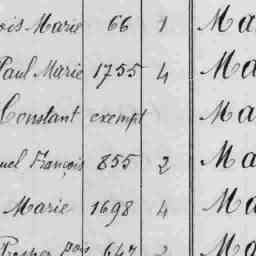 ois Marie 66 1 Ma
Paul Marie 1755 4 Ma
Constant exempt Ma
uel François 855 2 Ma
Marie 1698 4 Ma
Prosper 647 2 Ma